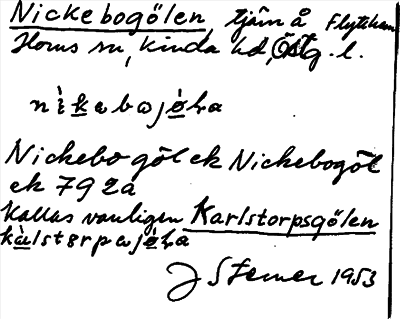 Nickebogölen tjärn å Flytthem
Horns sn, Kinda hd, Östg. l.
nìkebωjø̀lɑ
Nickebo göl ek Nickebogöl
ek 79 2a
Kallas vanligen Karlstorpsgölen
kàlstɵrpωjø̀lɑ
J Sterner 1953